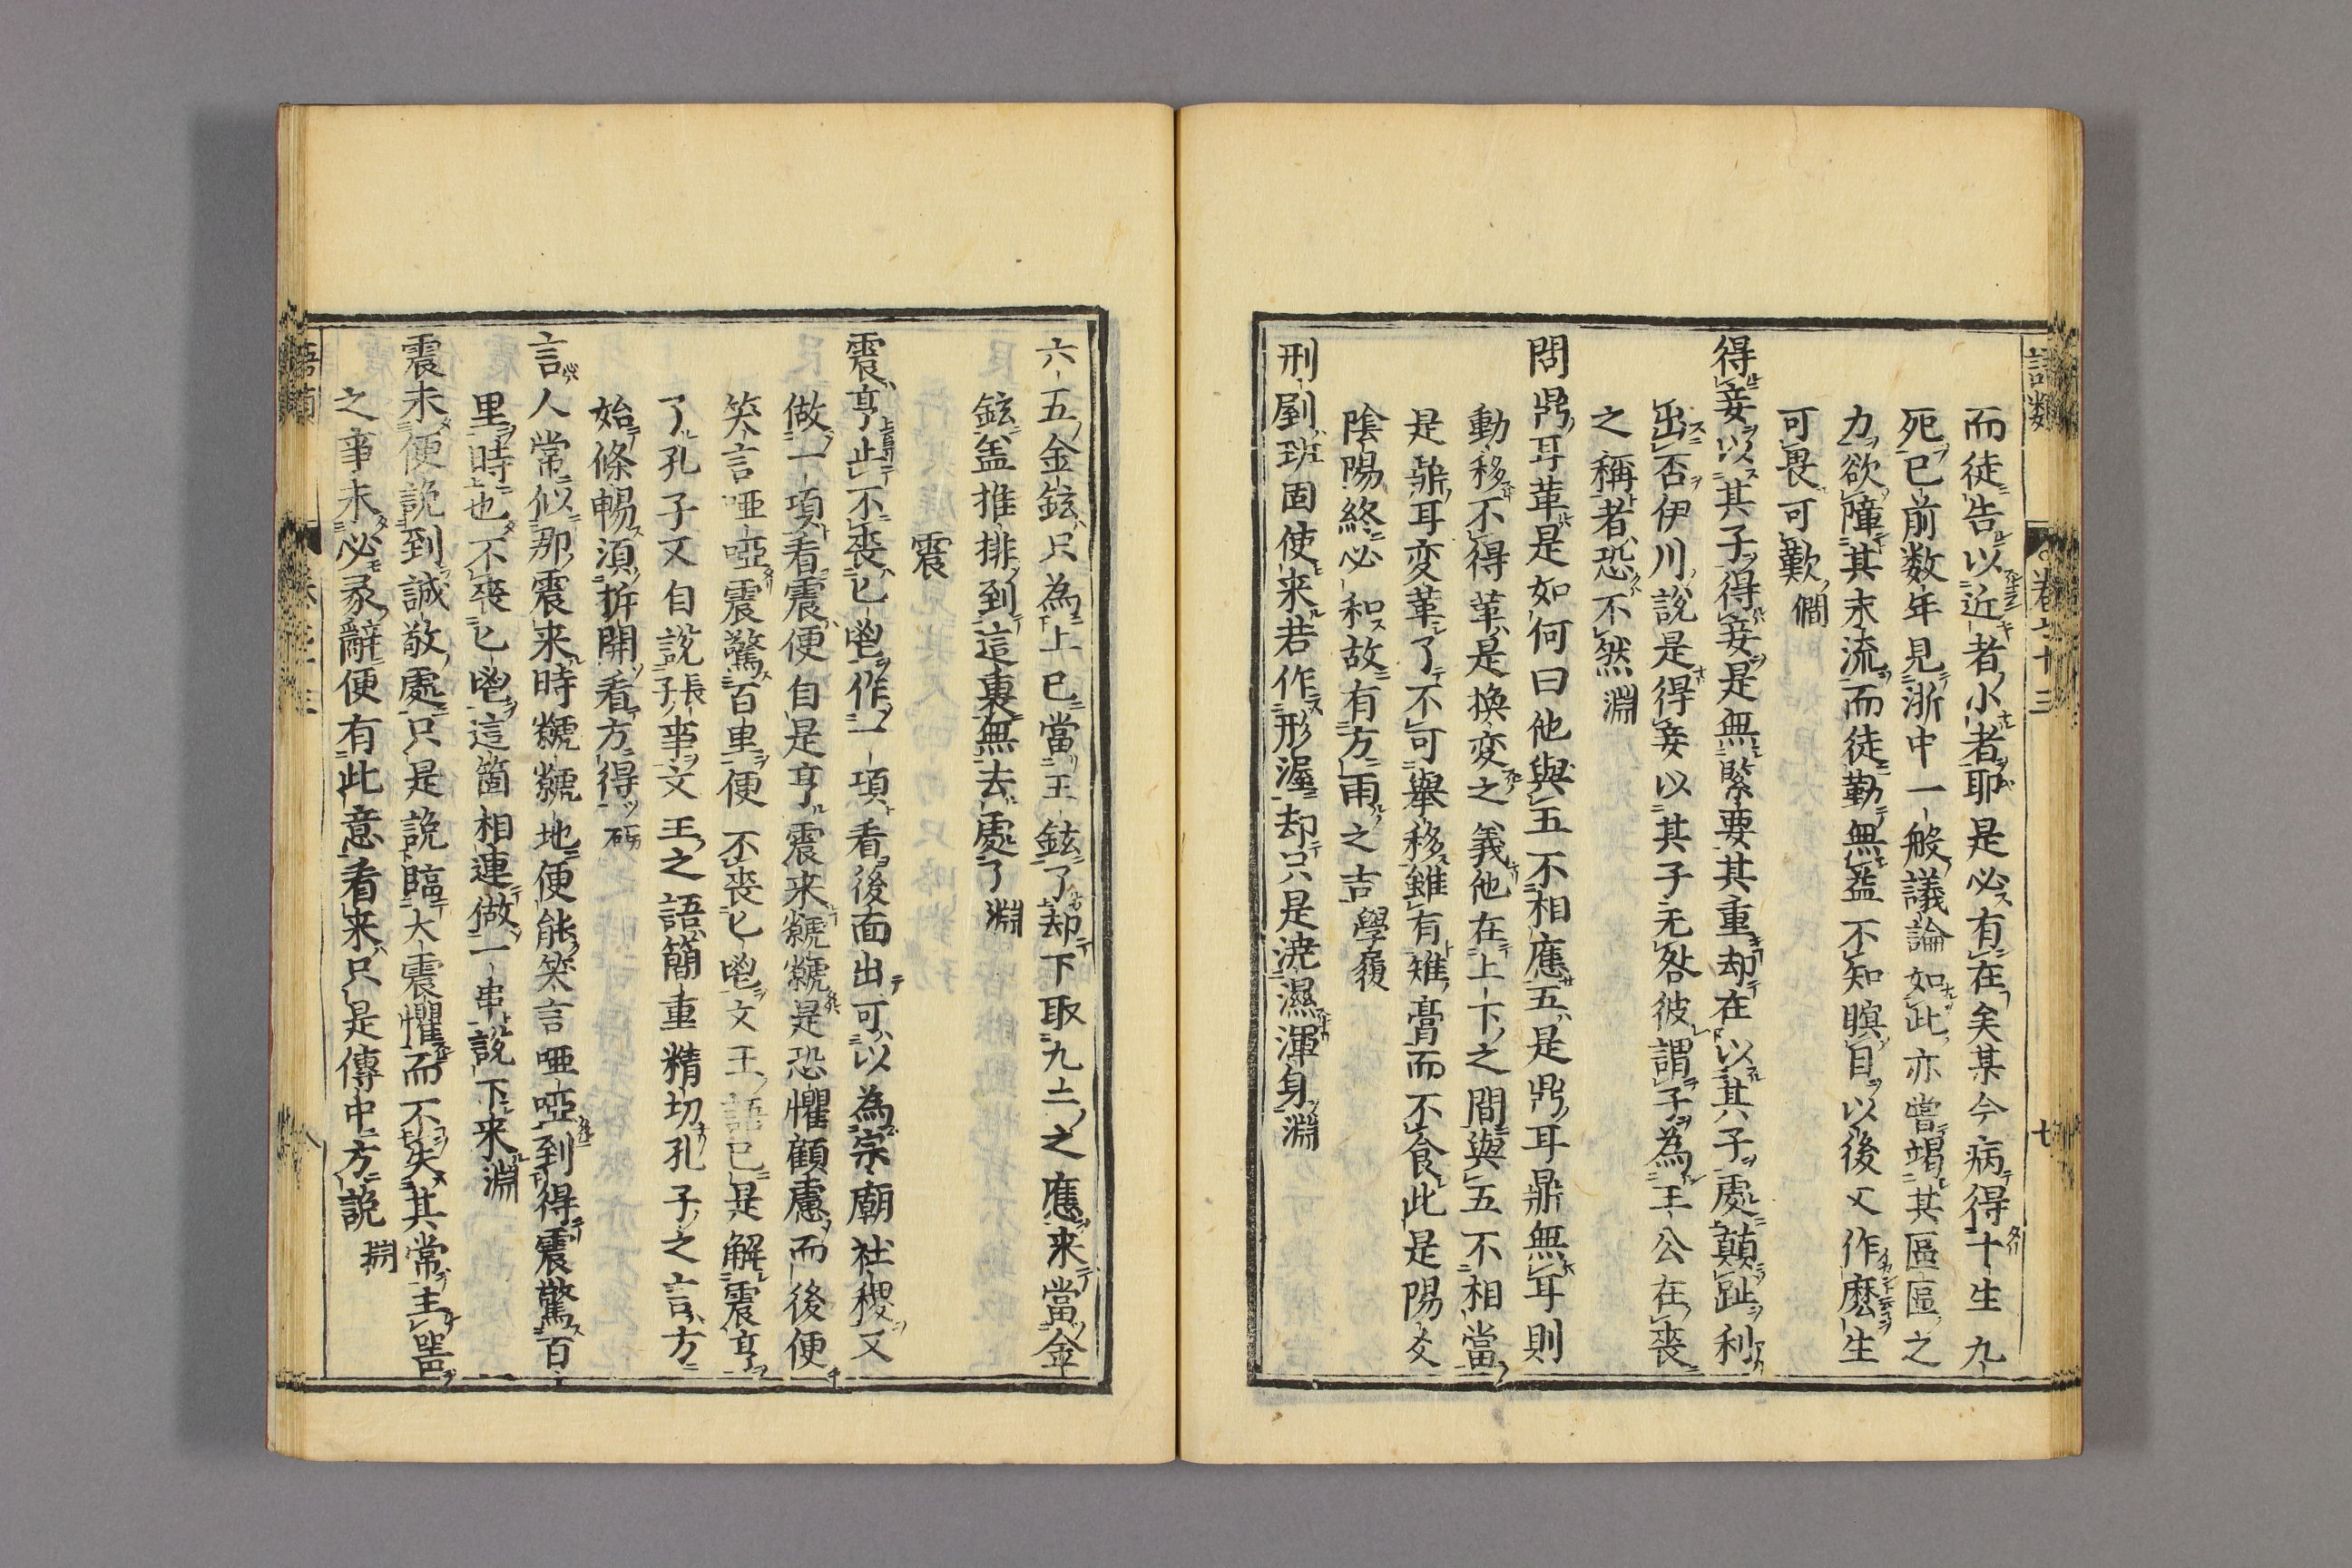 語類 卷七十三 七
而徒告以近者小者耶是必有在矣某今病得十生九
死已前数年見浙中一般議論如此亦嘗竭其區區之
力欲障其末流而徒勤無益不知瞑目以後又作麽生
可畏可歎 僩
得妾以其子得妾是無緊要其重却在以其子處顛趾利
出否伊川說是得妾以其子无咎彼謂子為王公在喪
之稱者恐不然 淵
問鼎耳革是如何曰他與五不相應五是鼎耳鼎無耳則
動移不得革是換変之義他在上下之間與五不相當
是鼎耳変革了不可舉移雖有雉膏而不食此是陽爻
陰陽終必和故有方雨之吉 學履
刑剭班固使来若作形渥却只是澆濕渾身 淵
六五金鉉只為上已當玉鉉了却下取九二之應来當金
鉉盖推排到這裏無去處了 淵
震
震亨止不喪匕鬯作一項看後面出可以為宗廟社稷又
做一項看震便自是亨震来虩虩是恐懼顧慮而後便
笑言啞啞震驚百里便不喪匕鬯文王語已是解震亨
了孔子又自說長子事文王之語簡重精切孔子之言方
始條暢須拆開看方得 砥
言人常似那震来時虩虩地便能笑言啞啞到得震驚百
里時也不喪匕鬯這箇相連做一串說下来 淵
震未便說到誠敬處只是說臨大震懼而不失其常主噐
之事未必彖辭便有此意看来只是傳中方說 淵